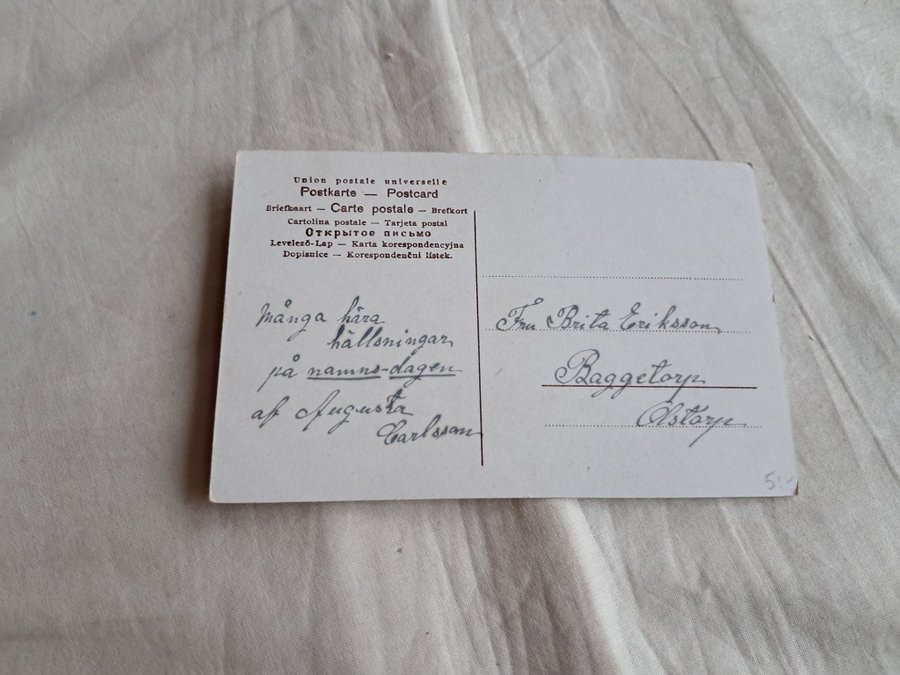 Union postale universelle
Postkarte — Postcard
Briefkaart — Carte postale — Brefkort
Cartolina postale — Tarjeta postal
Открытое письмо
Levelező-Lap — Karta korespondencyjna
Dopisnice — Korespondenční lístek.
Många kära
hällsningar
på namns-dagen
af Augusta
Carlsson
Fru Brita Eriksson
Baggetorp
Olstorp
5:-